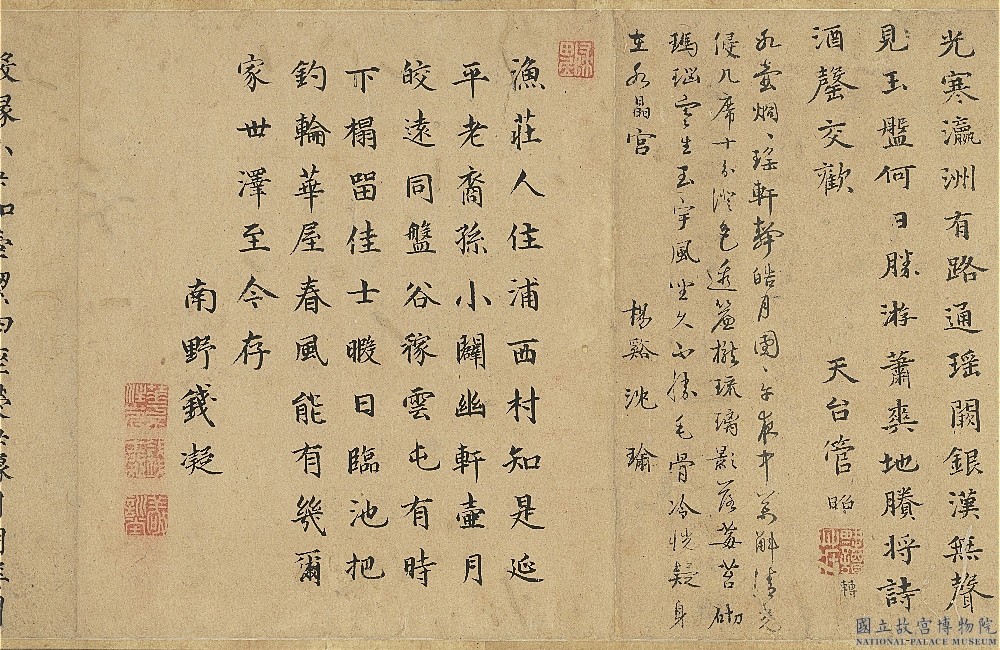 光寒瀛洲有路通瑶闕銀漢無聲
見玉盤何日勝游蕭爽地賸將詩
酒罄交歡
天台管昭
轉
冰壺烱〻瑶軒軒皓月團〻午夜中萬斛清光
侵几席十分澄色透簾櫳琉璃影落莓苔砌
瑪瑙寒生玉宇風坐久不勝毛骨冷恍疑身
在水晶宮
楊谿沈瑜
漁莊人住浦西村知是延
平老裔孫小闢幽軒壺月
皎遠同盤谷稼雲屯有時
下榻留佳士暇日臨池把
釣輪華屋春風能有幾爾
家世澤至令存
南野錢凝
國立故宮博物院
NATIONAL PALACE MUSEUM